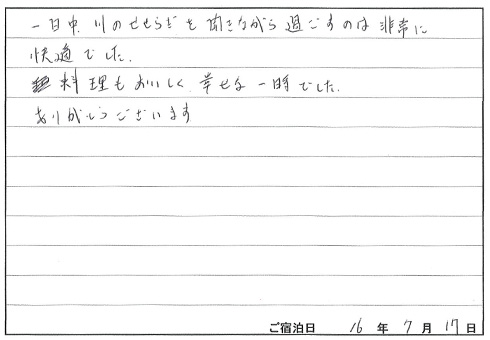 一日中、川のせせらぎを聞きながら過ごすのは非常に
快適でした。
料理もおいしく、幸せな一時でした。
ありがとうございます
ご宿泊日 16 年 7 月 17 日